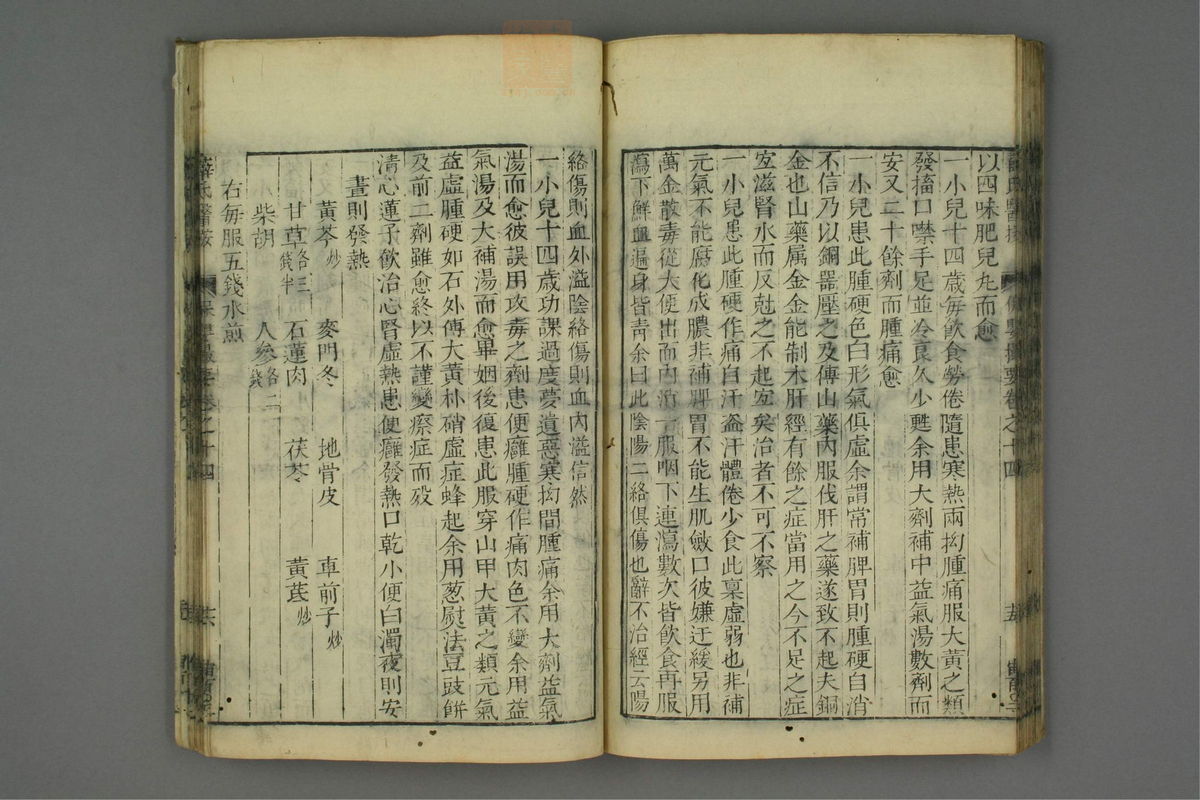 以四味肥兒丸而愈
一小兒十四歲每飲食勞倦隨患寒熱兩拗腫痛服大黃之類
發搐口噤手足並冷良久少甦余用大劑補中益氣湯數劑而
安又二十餘劑而腫痛愈
一小兒患此腫硬色白形氣俱虛余謂常補脾胃則腫硬自消
不信乃以銅器壓之及傅山藥內服伐肝之藥遂致不起夫銅
金也山藥屬金金能制木肝經有餘之症當用之今不足之症
宜滋腎水而反尅之不起宜矣治者不可不察
一小兒患此腫硬作痛自汗盗汗體倦少食此稟虛弱也非補
元氣不能腐化成膿非補脾胃不能生肌斂口彼嫌迂緩另用
萬金散毒從大便出而內消一服咽下連瀉數次皆飲食再服
瀉下鮮血遍身皆青余曰此陰陽二絡俱傷也辭不治經云陽
絡傷則血外溢陰絡傷則血內溢信然
一小兒十四歲功課過度夢遺惡寒拗間腫痛余用大劑益氣
湯而愈彼誤用攻毒之劑患便癰腫硬作痛肉色不變余用益
氣湯及大補湯而愈畢姻後復患此服穿山甲大黃之類元氣
益虛腫硬如石外傅大黃朴硝虛症蜂起余用葱熨法豆豉餅
及前二劑雖愈終以不謹變瘵症而歿
清心蓮子飲治心腎虛熱患便癰發熱口乾小便白濁夜則安
晝則發熱
黃芩炒 麥門冬 地骨皮 車前子炒
甘草各三錢半 石蓮肉 茯苓 黃芪炒
柴胡 人參各二錢
右每服五錢水煎
薛氏醫按 保嬰撮要卷之十四